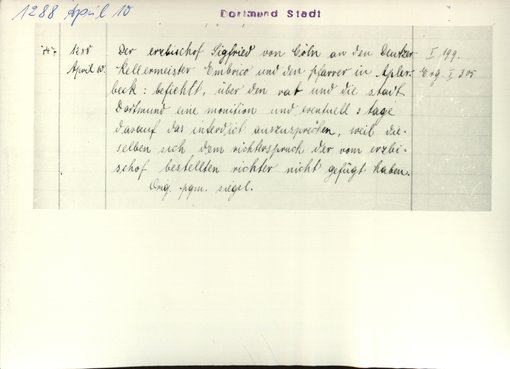 1288 April 10
Dortmund Stadt
Der erzbischof Sigfried von Cöln an den Deutzer I 199.
April 10. Kellermeister Embrico und den pfarrer in Apler- Erg. I 305
beck: befiehlt, über den rat und die stadt
Dortmund eine monition und eventuell 8 tage
darauf das interdict auszusprechen, weil die-
selben sich dem richterspruch der vom erzbi-
schof bestellten richter nicht gefügt haben.
Orig. pgm. siegel.